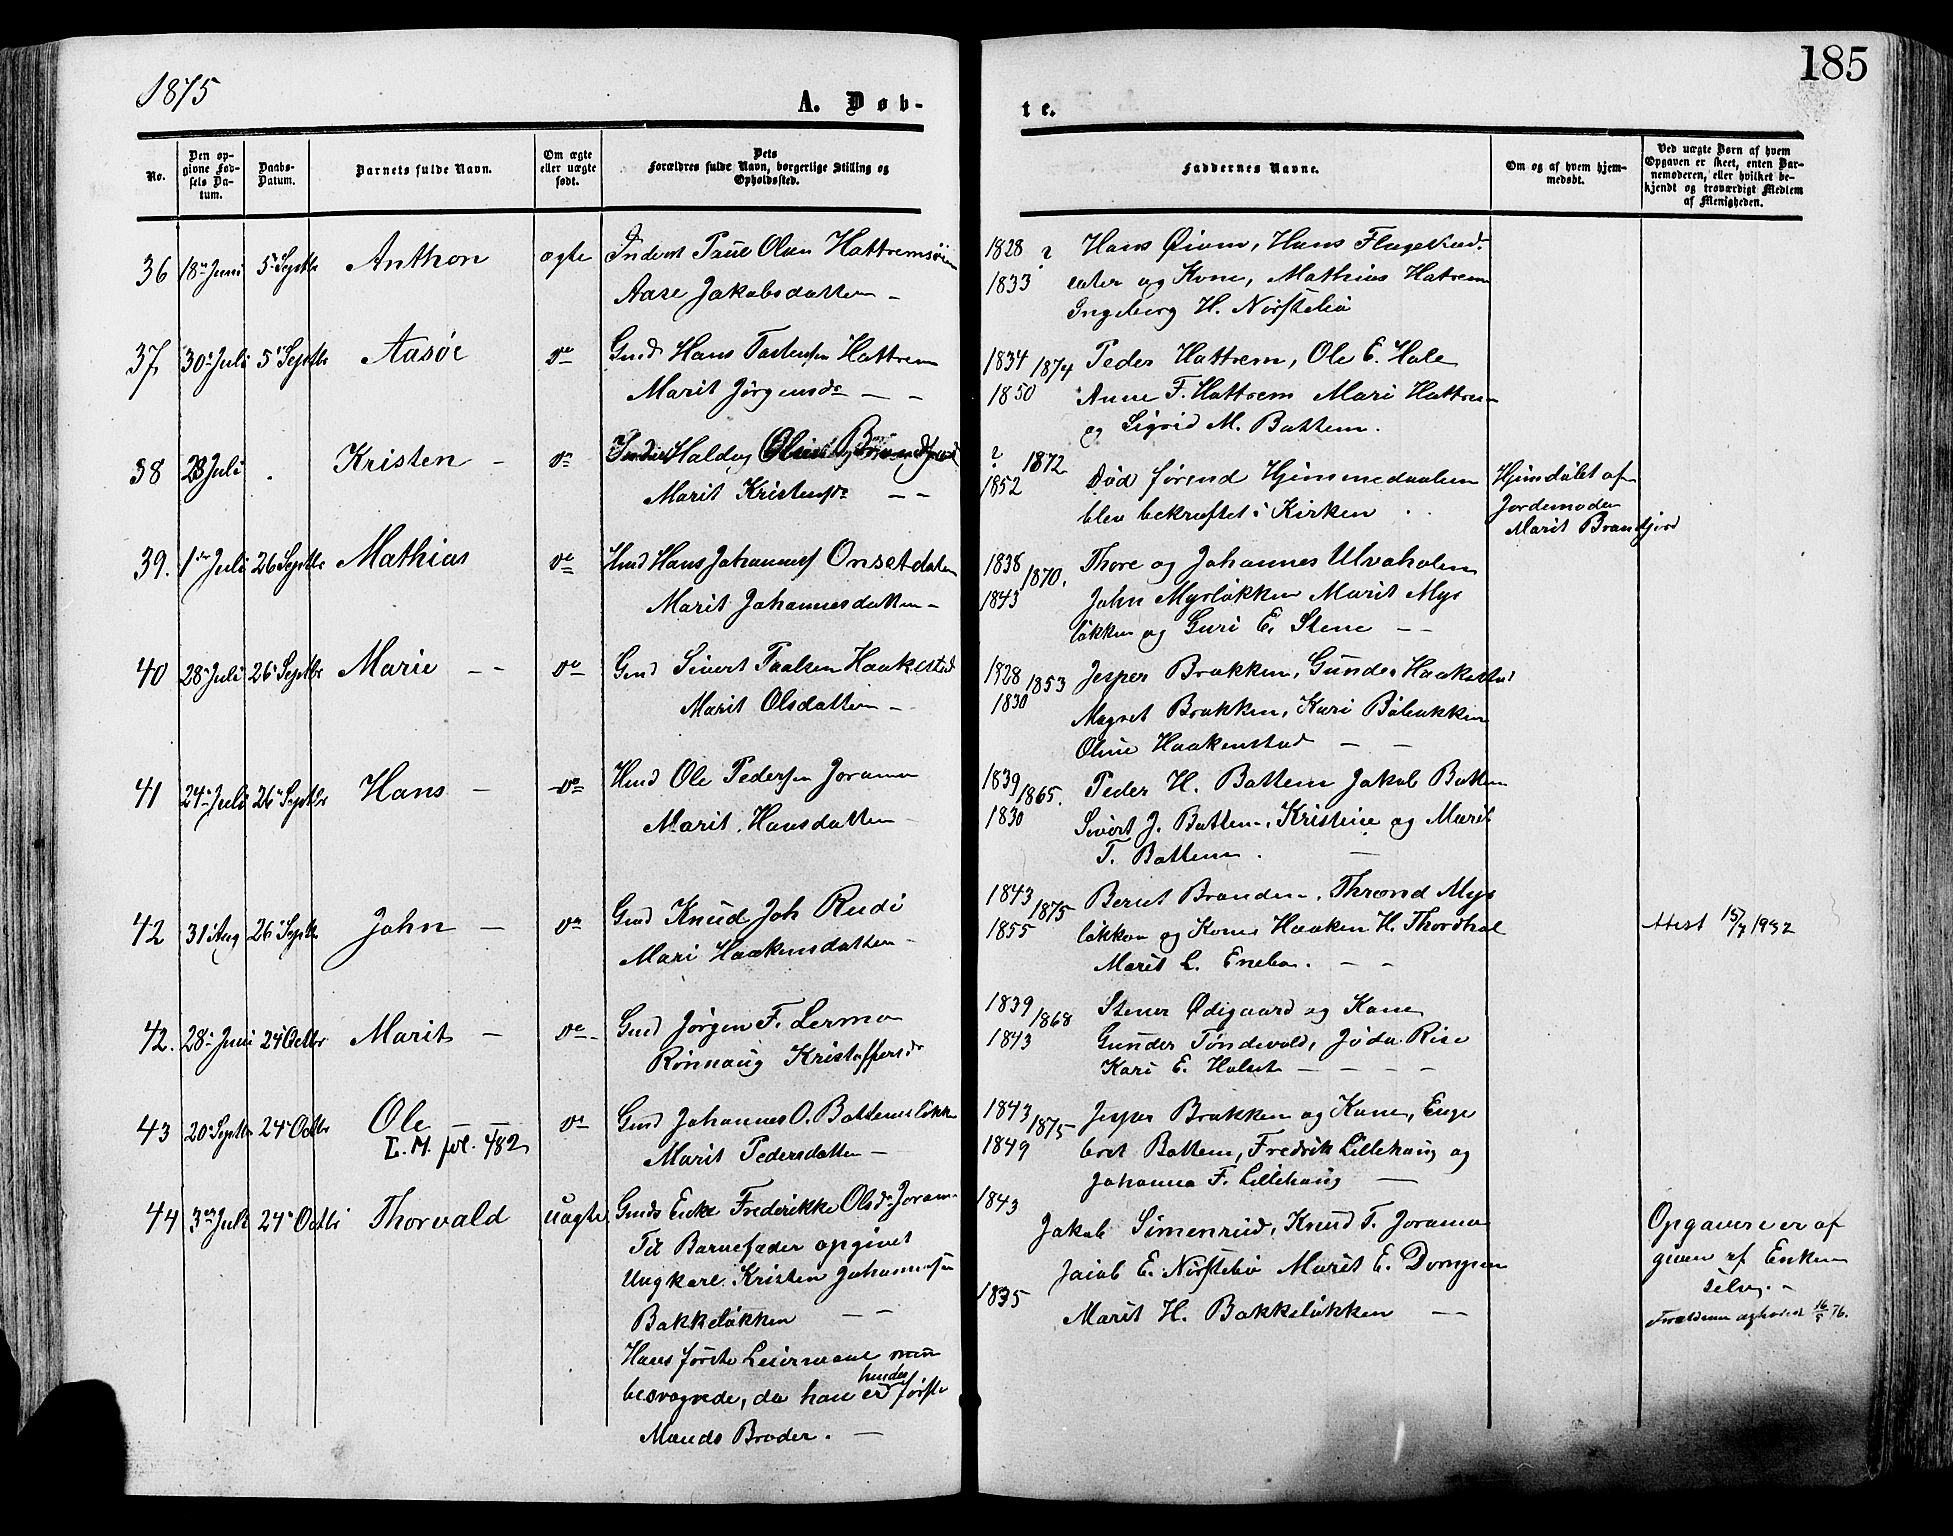 1875
A. Døb-
te.
185
No.
Den op-
givne Fød-
sels Da-
tum.
Daabs-
Datum.
Barnets fulde Navn.
Om ægte
eller uægte
født.
Dets
Forældres fulde Navn, borgerlige Stilling og
Opholdssted.
Faddernes Navne.
Om og af hvem hjem-
medøbt.
Ved uægte Børn af hvem
Opgaven er skeet, enten Bar-
nemoderen, eller hvilket be-
kjendt og troværdigt Medlem
af Menigheden.
36 18de Juni 5te Septbr Anthon ægte Inderst Olsen
Aase Jakobsdatter –
1828 ? Hans Øien, Hans
1833 og Kone, Mathias Hatrem
Ingeborg H. Nörstebö
37 30te Juli 5te Septbr Aasøe do Gmd Hans Hattrem
Marit Jørgensdr – –
1834 1874 Peder Hattrem, Ole E. Hole
1850 Anne F. Hattrem Mari Hattrem
og Sigrid M. Battem.
38 28 Juli . Kristen – do
Marit Kristensdr – –
? 1872 Død førend Hjemmedaaben
1852 blev bekræftet i Kirken . .
Hjemdøbt af
Jordemoder
Marit Brandfjord
39. 1ste Juli 26 Septbr Mathias do Hmd Hans Johannes Onsetdalen
Marit Johannesdatter –
1838 1870. Thore og Johannes Ulvaholen
1843 John Mysløkken Marit Mys
løkken og Guri E. Stene – –
40 28de Juli 26 Septbr Marie – – do Gmd Sivert Paalsen Haakestad
Marit Olsdatter –
1828 1853 Jesper Brækken, Gunder
1830 Magret Brækken, Kari
Oline Haakenstad – –
41 24de Juli 26de Septbr Hans – do Hmd Ole Pedersen Joramo
Marit Hansdatter –
1839 1865. Peder H. Battem Jakob Battem
1830 Sivert J. Battem, Kristine og Marit
T. Battem . –
42 31te Aug 26de Septbr John – do Gmd Knud Joh Rudi
Mari Haakensdatter –
1843 1875 Berut Branden, Thrond Mys
1855 løkken og Kone Haaken H. Thordhol
Marit L. Enebo. – –
Attest 15/7 1932
42. 28de Juni 24de Octbr Marit – do Gmd Jørgen F. Lermo
Rönnaug Kristoffersdr
1839 1868 Stener Ødegaard og Kone
1843 Gunder Töndevold, Jöda Rise
Kari E. Holset – – – –
43 20de Septbr 24de Octbr Ole – – do Gmd Johannes O. Battemsløkken
L. M. fol. 482
Marit Pedersdatter –
1843 1875 Jesper Brækken og Kone, Enge
1849 bret Battem, Fredrik Lillehaug og
Johanna F. Lillehaug –
44 3die Juli 24de Octbr Thorvald uægte Gmds Enke Frederikke Olsdr Joramo
Til Barnefader opgivet
Ungkarl Kristen Johannesen
Bakkeløkken – –
Hans første Leiermaal men
besvogrede, da han er hendes første
Mands Broder. –
1843 Jakob Simenrud, Knud T. Joramo
Jakob E. Nörstebö Marit E.
1835 Marit H. Bakkeløkken – –
Opgaven er af
given af Enken
selv. –
16/5 76.